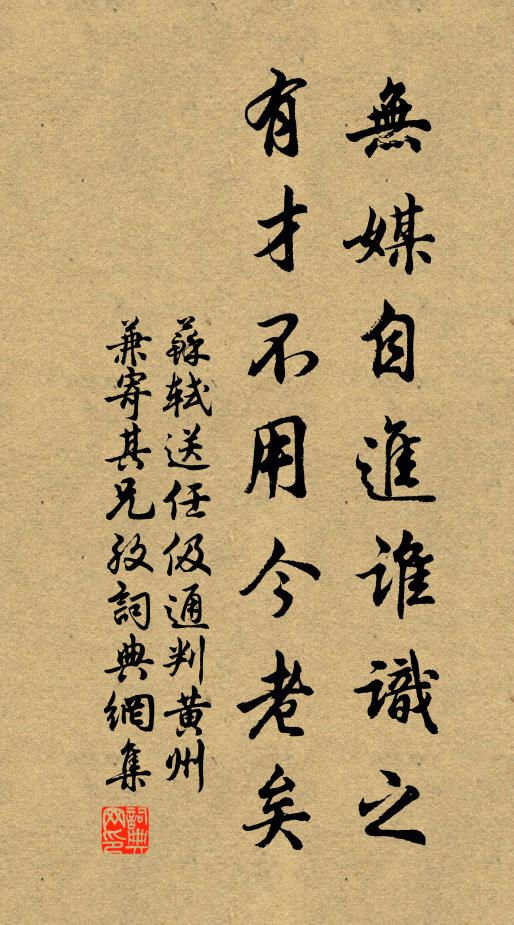 無媒自進誰識之
有才不用今老矣
蘇軾送任伋通判黃州
兼寄其兄孜詞典網集
詞典
网印